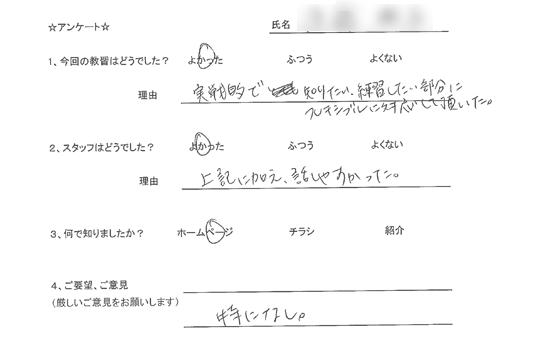 ☆アンケート☆
氏名
1、今回の教習はどうでした？ よかった ふつう よくない
理由 実戦的で 知りたい、練習したい部分に
フレキシブルに対応して頂いた。
2、スタッフはどうでした？ よかった ふつう よくない
理由 上記に加え、話しやすかった。
3、何で知りましたか？ ホームページ チラシ 紹介
4、ご要望、ご意見
（厳しいご意見をお願いします）
特になし。